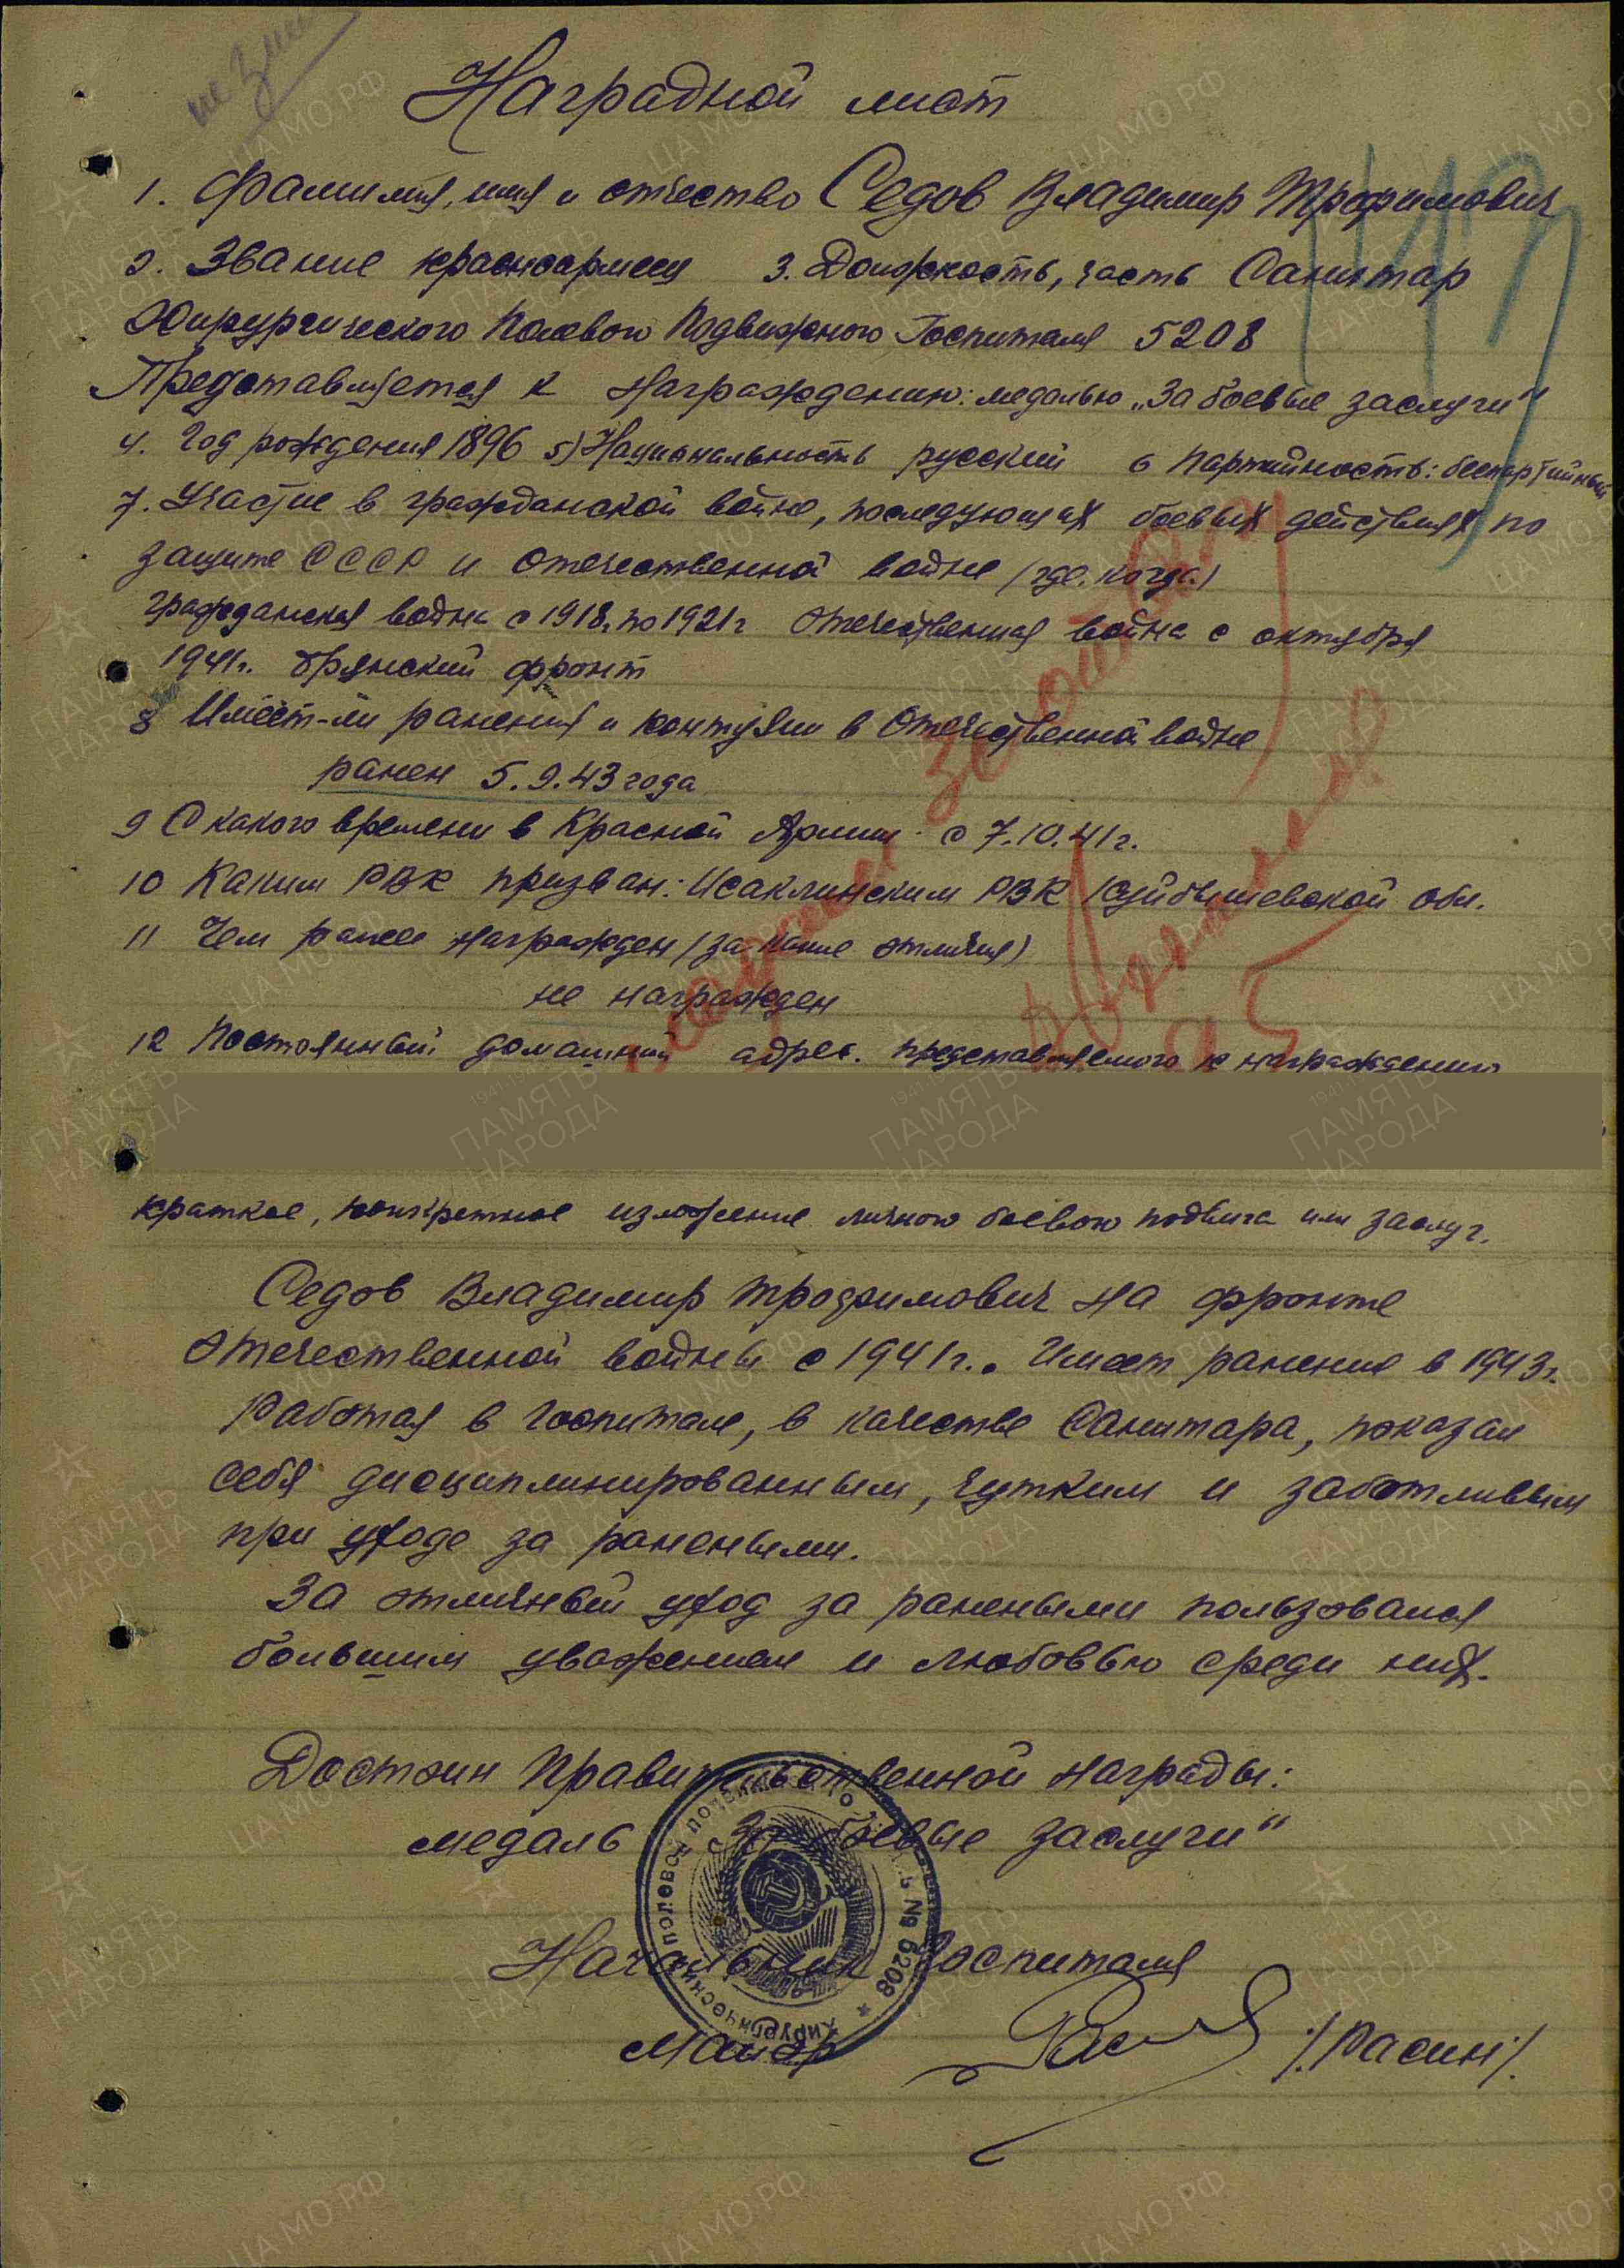 Наградной лист
1. Фамилия, имя и отчество Седов Владимир Трофимович
2. Звание красноармеец 3. Должность, часть Санитар
Хирургического Полевого Подвижного Госпиталя 5208
Представляется к награждению: медалью „За боевые заслуги"
4. Год рождения 1896 5) Национальность русский 6 Партийность: беспартийный
7. Участие в гражданской войне, последующих боевых действиях по
защите СССР и отечественной войне (где, когда)
гражданская война с 1918 по 1921г Отечественная война с октября
1941г. Брянский фронт
8 Имеет-ли ранения и контузии в Отечественной войне
ранен 5.9.43 года
9 С какого времени в Красной Армии с 7.10.41г.
10 Каким РВК призван: Исаклинским РВК Куйбышевской обл.
11 Чем ранее награжден (за какие отличия)
не награжден
12 Постоянный домашний адрес. представляемого к награждению
краткое, конкретное изложение личного боевого подвига или заслуг.
Седов Владимир Трофимович на фронте
Отечественной войны с 1941г.. Имеет ранение в 1943г.
Работая в госпитале, в качестве Санитара, показал
себя дисциплинированным, чутким и заботливым
при уходе за ранеными.
За отличный уход за ранеными пользовался
большим уважением и любовью среди них.
Достоин Правительственной награды:
медаль „За боевые заслуги"
Начальник Госпиталя
Майор /Расин/.
Хирургический полевой № 5208
ПАМЯТЬ НАРОДА
ЦА МО РФ